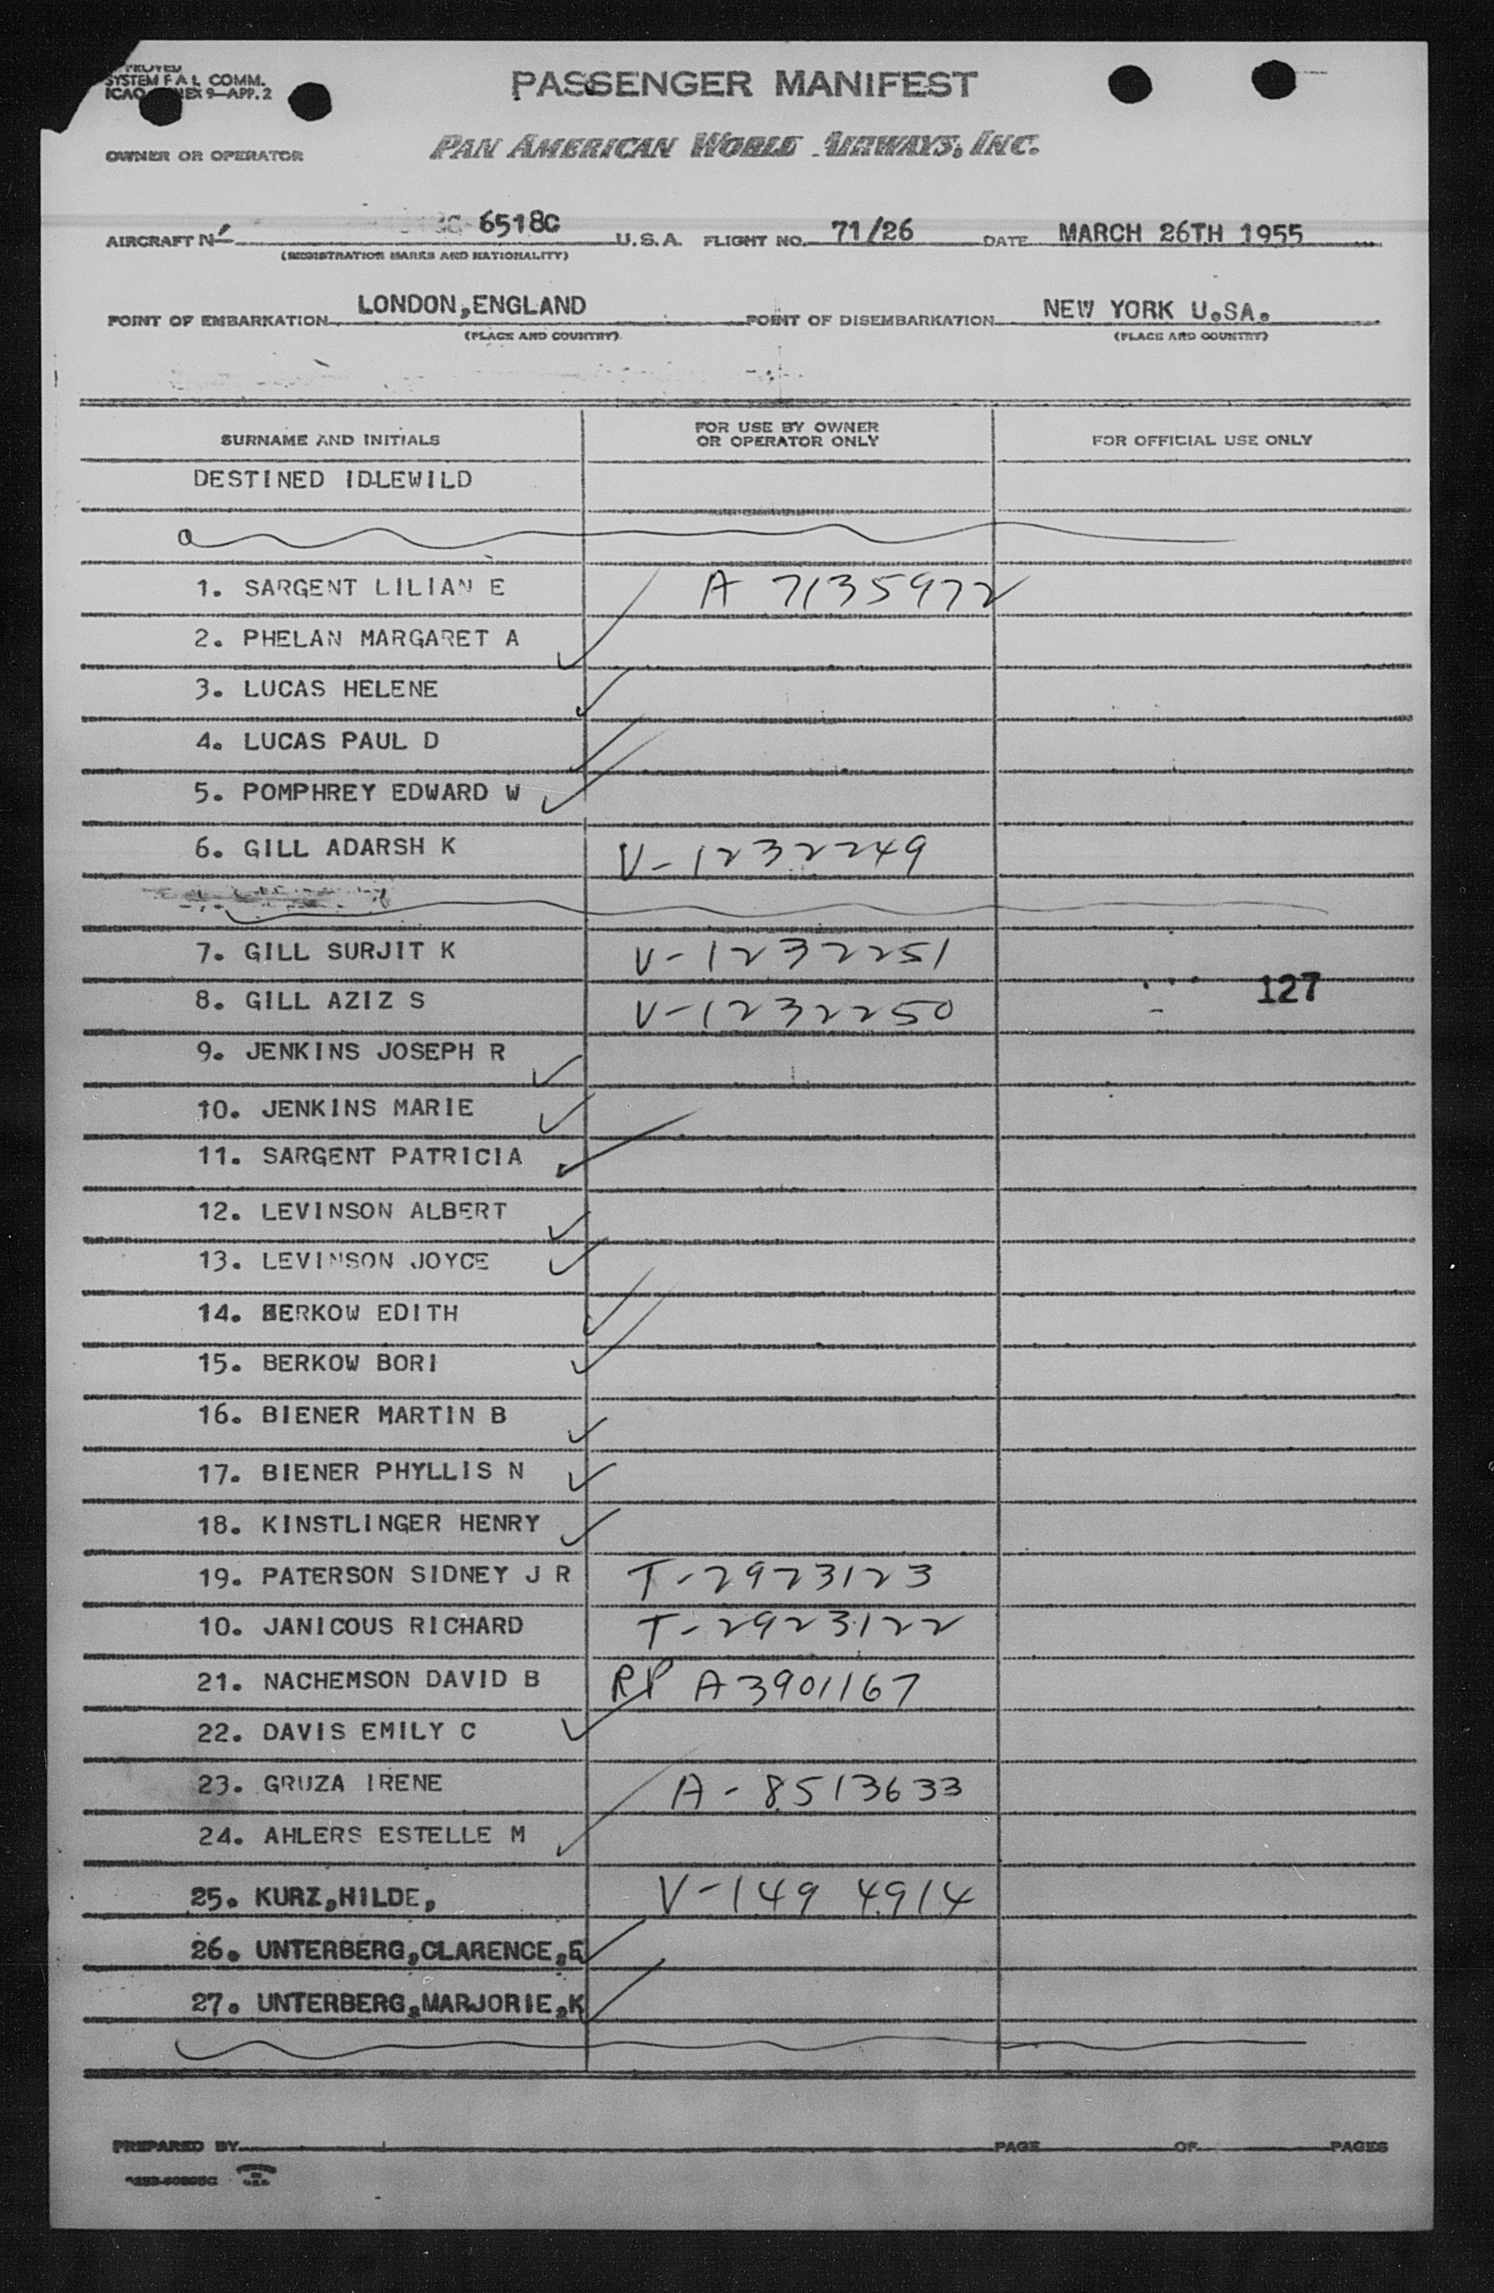 SYSTEM F A L COMM.
9—APP. 2
PASSENGER MANIFEST
OWNER OR OPERATOR PAN AMERICAN WORLD AIRWAYS, INC.
AIRCRAFT No 6518C U.S.A. FLIGHT NO. 71/26 DATE MARCH 26TH 1955
(REGISTRATION MARKS AND NATIONALITY)
POINT OF EMBARKATION LONDON,ENGLAND POINT OF DISEMBARKATION NEW YORK U.SA.
(PLACE AND COUNTRY) (PLACE AND COUNTRY)
SURNAME AND INITIALS FOR USE BY OWNER OR OPERATOR ONLY FOR OFFICIAL USE ONLY
DESTINED IDLEWILD
1. SARGENT LILIAN E A 7135972
2. PHELAN MARGARET A
3. LUCAS HELENE
4. LUCAS PAUL D
5. POMPHREY EDWARD W
6. GILL ADARSH K V-1232249
7. GILL SURJIT K V-1232251
8. GILL AZIZ S V-1232250 127
9. JENKINS JOSEPH R
10. JENKINS MARIE
11. SARGENT PATRICIA
12. LEVINSON ALBERT
13. LEVINSON JOYCE
14. BERKOW EDITH
15. BERKOW BORI
16. BIENER MARTIN B
17. BIENER PHYLLIS N
18. KINSTLINGER HENRY
19. PATERSON SIDNEY J R T-2923123
10. JANICOUS RICHARD T-2923122
21. NACHEMSON DAVID B RP A3901167
22. DAVIS EMILY C
23. GRUZA IRENE A-8513633
24. AHLERS ESTELLE M
25. KURZ,HILDE, V-149 4914
26. UNTERBERG,CLARENCE,E
27. UNTERBERG,MARJORIE,K
PREPARED BY PAGE OF PAGES